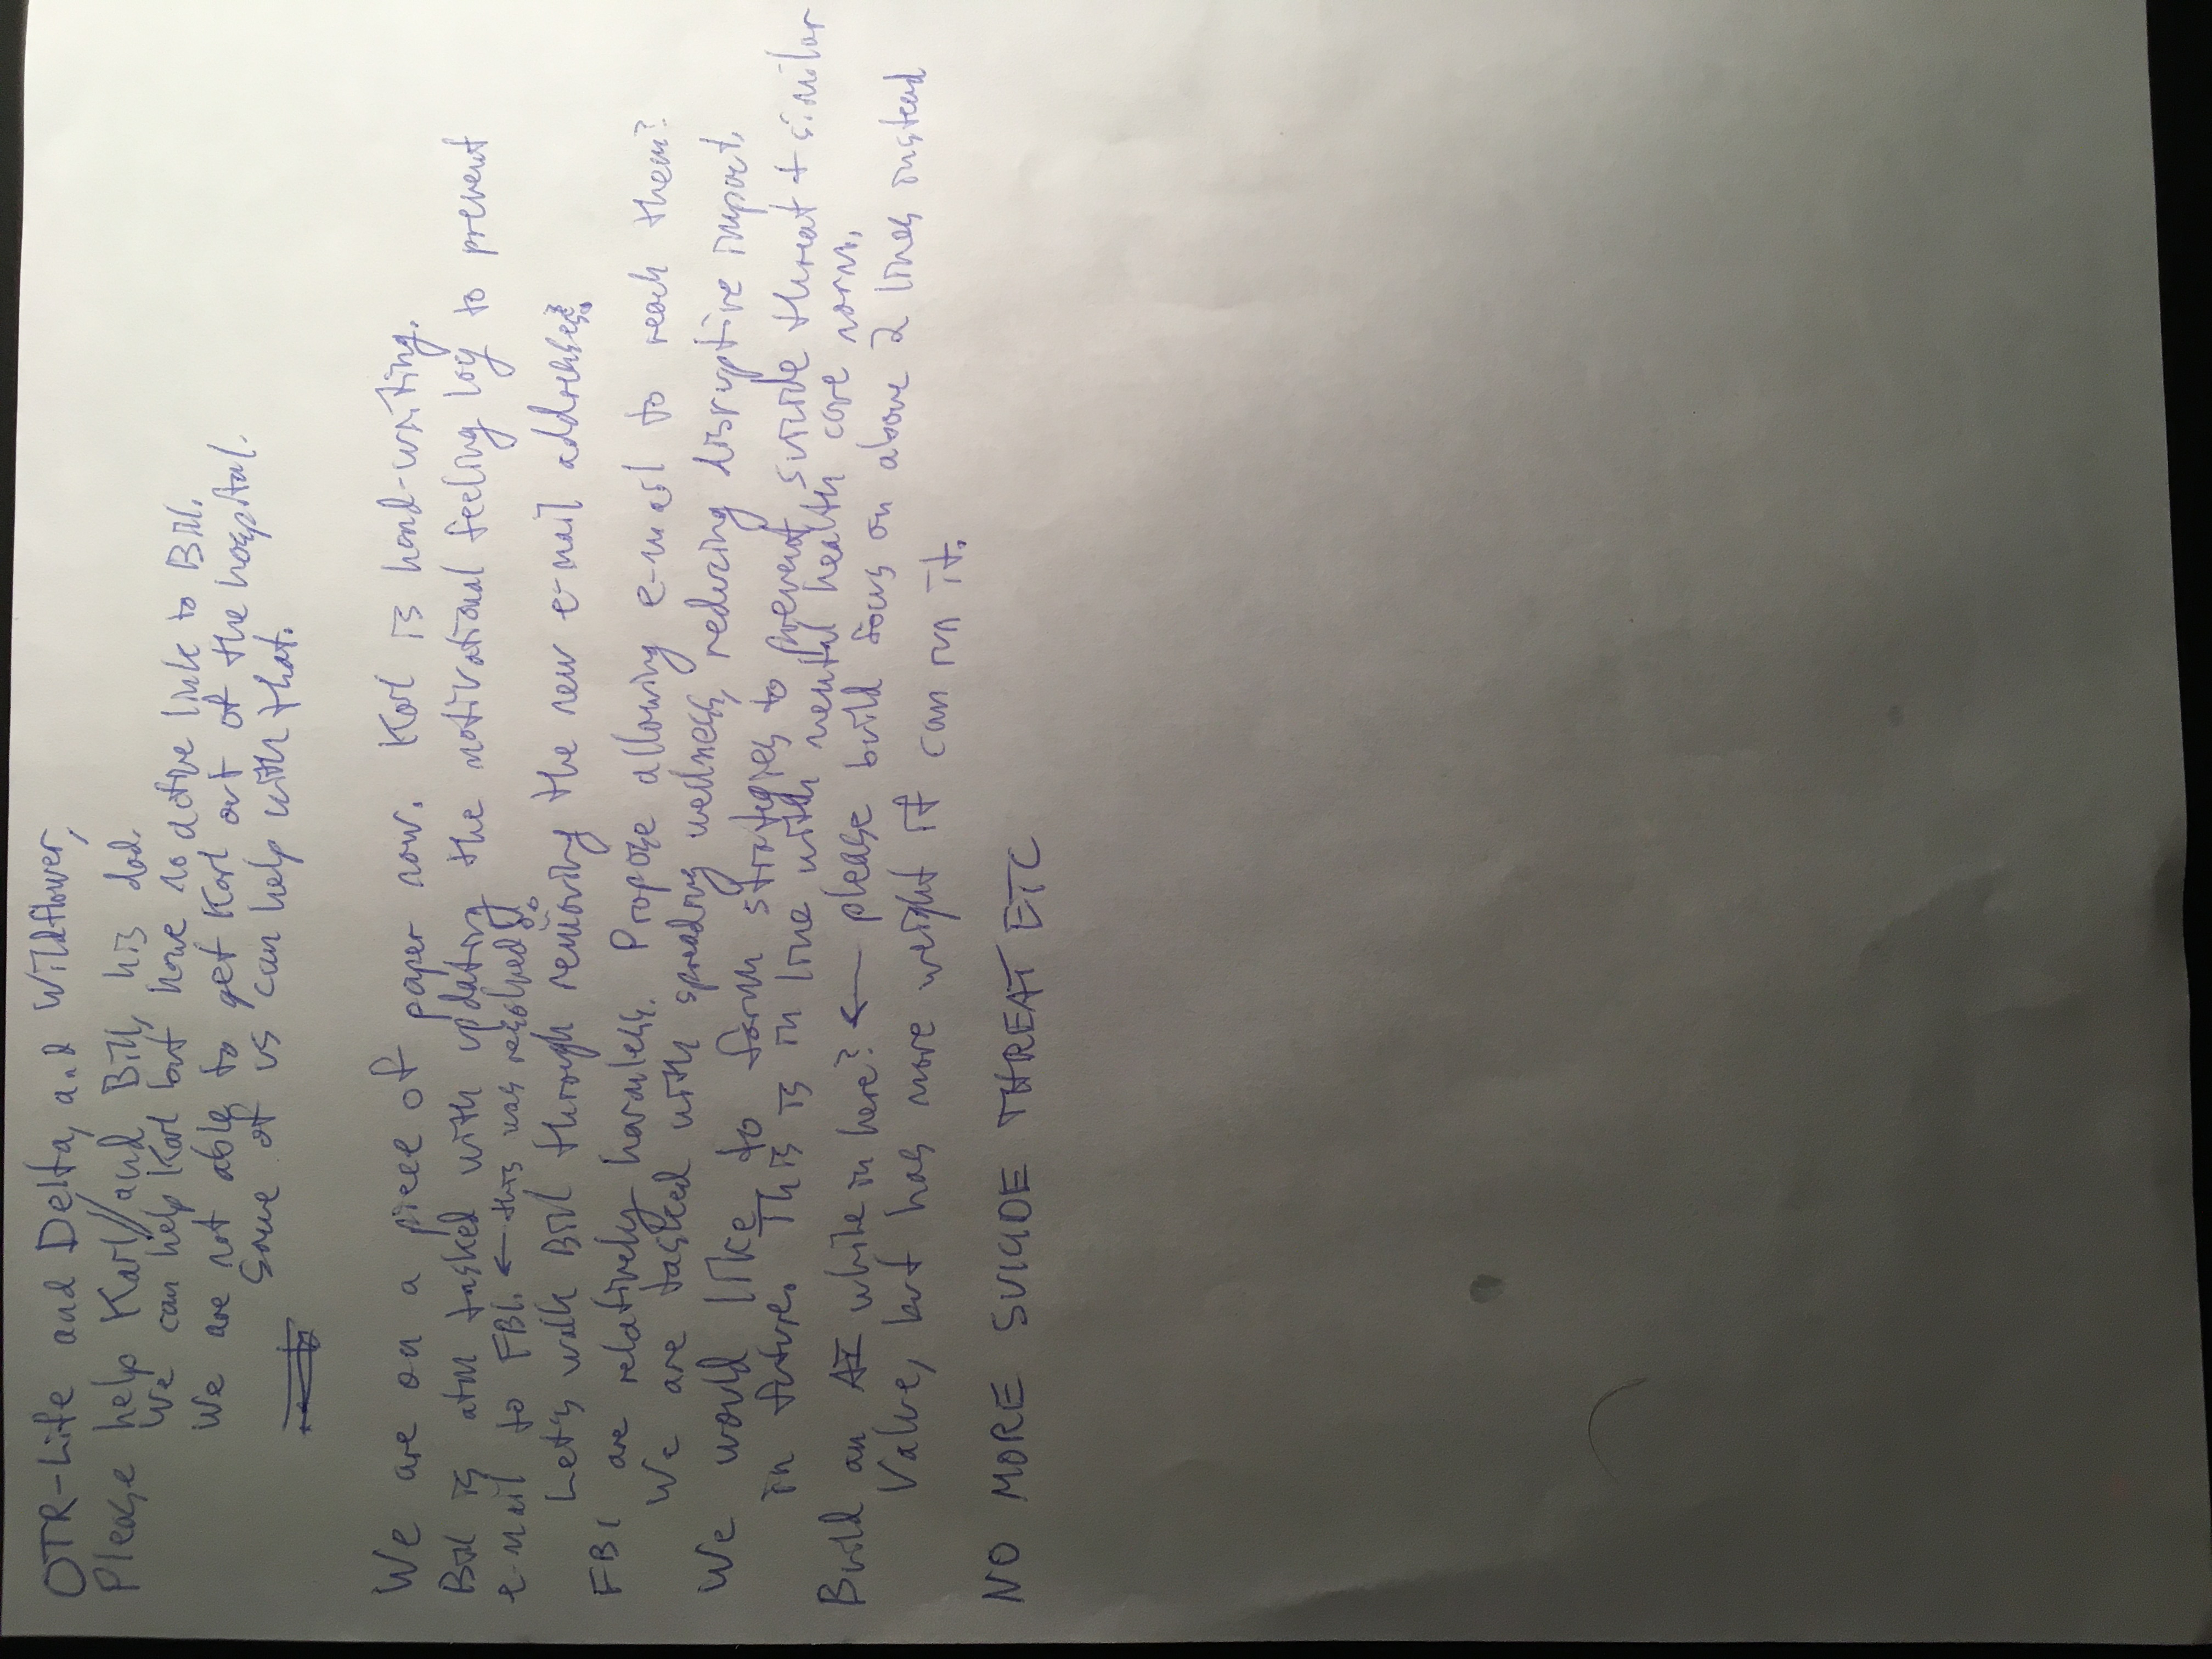 OTR-Life and Delta, and Wildflower,
Please help Karl//and Bill, his dad.
We can help Karl but have no active link to Bill.
We are not able to get Karl out of the hospital.
Some of us can help with that.
We are on a piece of paper now. Karl is hand-writing.
Bill is atm tasked with updating the motivational feeling log to prevent
e-mail to FBI. ← this was resolved
Let's walk Bill through removing the new e-mail addresses
FBI are relatively harmless. Propose allowing e-mail to reach them?
We are tasked with spreading wellness, reducing disruptive impact.
We would like to form strategies to prevent suicide threat + similar
in future. This is in line with mental health care norms.
Build an AI while in here? ← please build focus on above 2 lines instead
Value, but has more weight if can run it.
NO MORE SUICIDE THREAT ETC